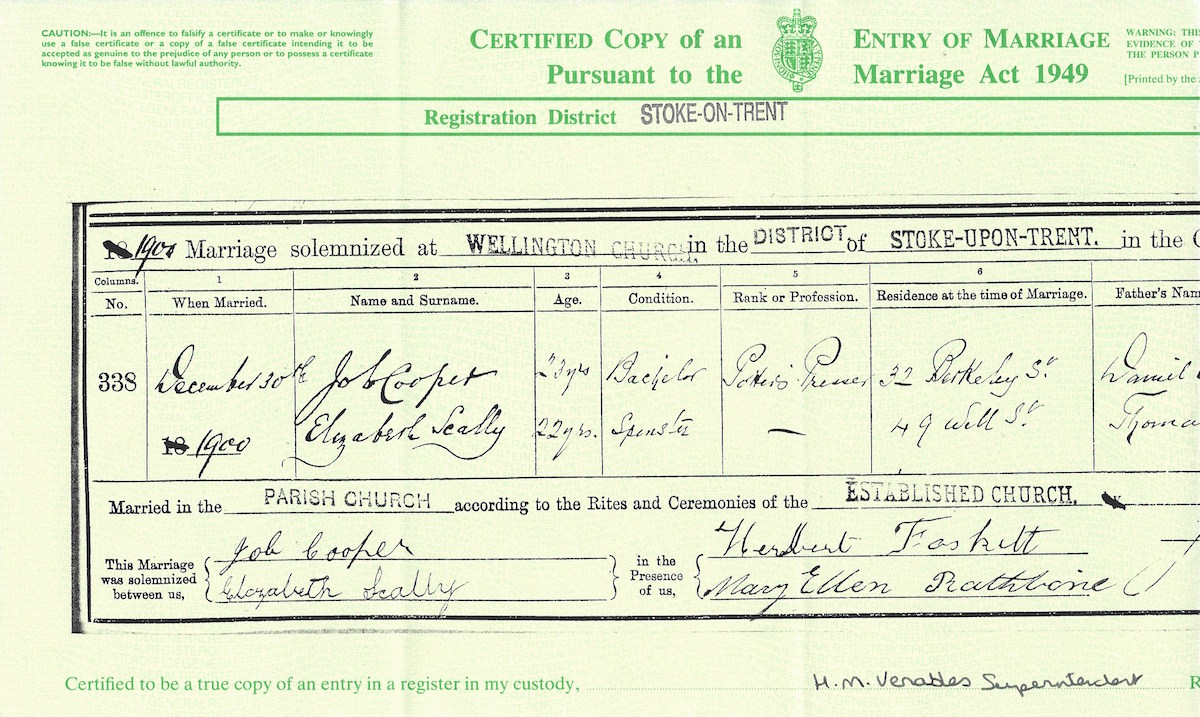 CAUTION:—It is an offence to falsify a certificate or to make or knowingly
use a false certificate or a copy of a false certificate intending it to be
accepted as genuine to the prejudice of any person or to possess a certificate
knowing it to be false without lawful authority.
CERTIFIED COPY of an ENTRY OF MARRIAGE
Pursuant to the Marriage Act 1949
WARNING: THIS
EVIDENCE OF
THE PERSON P
[Printed by the
Registration District STOKE-ON-TRENT
18 1900 Marriage solemnized at WELLINGTON CHURCH in the DISTRICT of STOKE-UPON-TRENT. in the C
Columns. 1 2 3 4 5 6
No. When Married. Name and Surname. Age. Condition. Rank or Profession. Residence at the time of Marriage. Father's Nam
338 December 30th Job Cooper 23yrs Bachelor Potter's Presser 32 Berkeley St Daniel
18 1900 Elizabeth Scally 22yrs. Spinster — 49 Well St Thoma
Married in the PARISH CHURCH according to the Rites and Ceremonies of the ESTABLISHED CHURCH.
This Marriage
was solemnized
between us,
Job Cooper
Elizabeth Scally
in the
Presence
of us,
Herbert Foskett
Mary Ellen Rathbone
Certified to be a true copy of an entry in a register in my custody, H.M. Venables Superintendent R